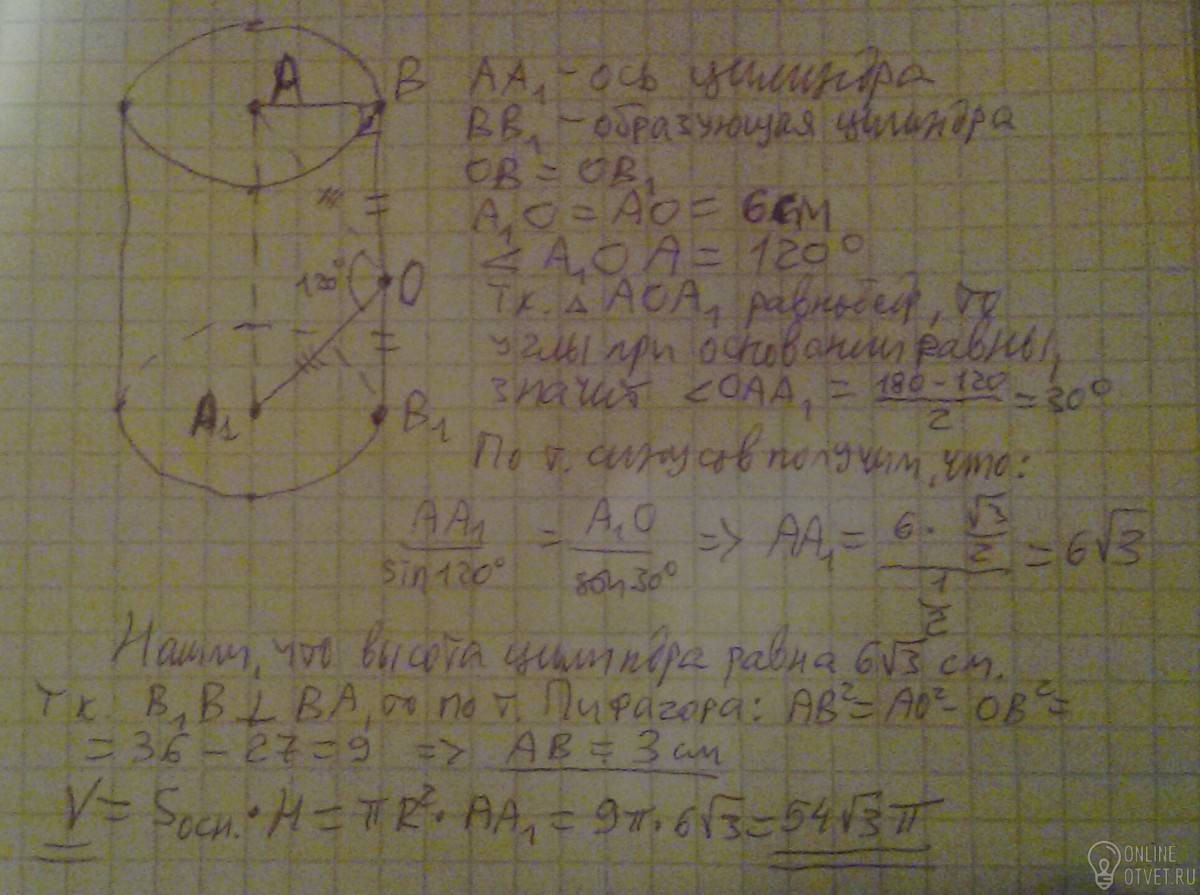 A B AA₁ - ось цилиндра
BB₁ - образующая цилиндра
OB = OB₁
A₁O = AO = 6см
< A₁OA = 120°
120° O Тк. △ AOA₁ равнобедр, то
углы при основании равны,
A₁ B₁ значит <OAA₁ = (180-120)/2 = 30°
По т. синусов получим, что:
AA₁/sin120° = A₁O/sin30° => AA₁ = (6·√3/2)/(1/2) = 6√3
Нашли, что высота цилиндра равна 6√3 см.
Тк. B₁B ⊥ BA, то по т. Пифагора: AB² = AO² - OB² =
= 36 - 27 = 9 => AB = 3 см
V = Sосн. · H = πR² · AA₁ = 9π · 6√3 = 54√3 π
ONLINE
OTVET.RU